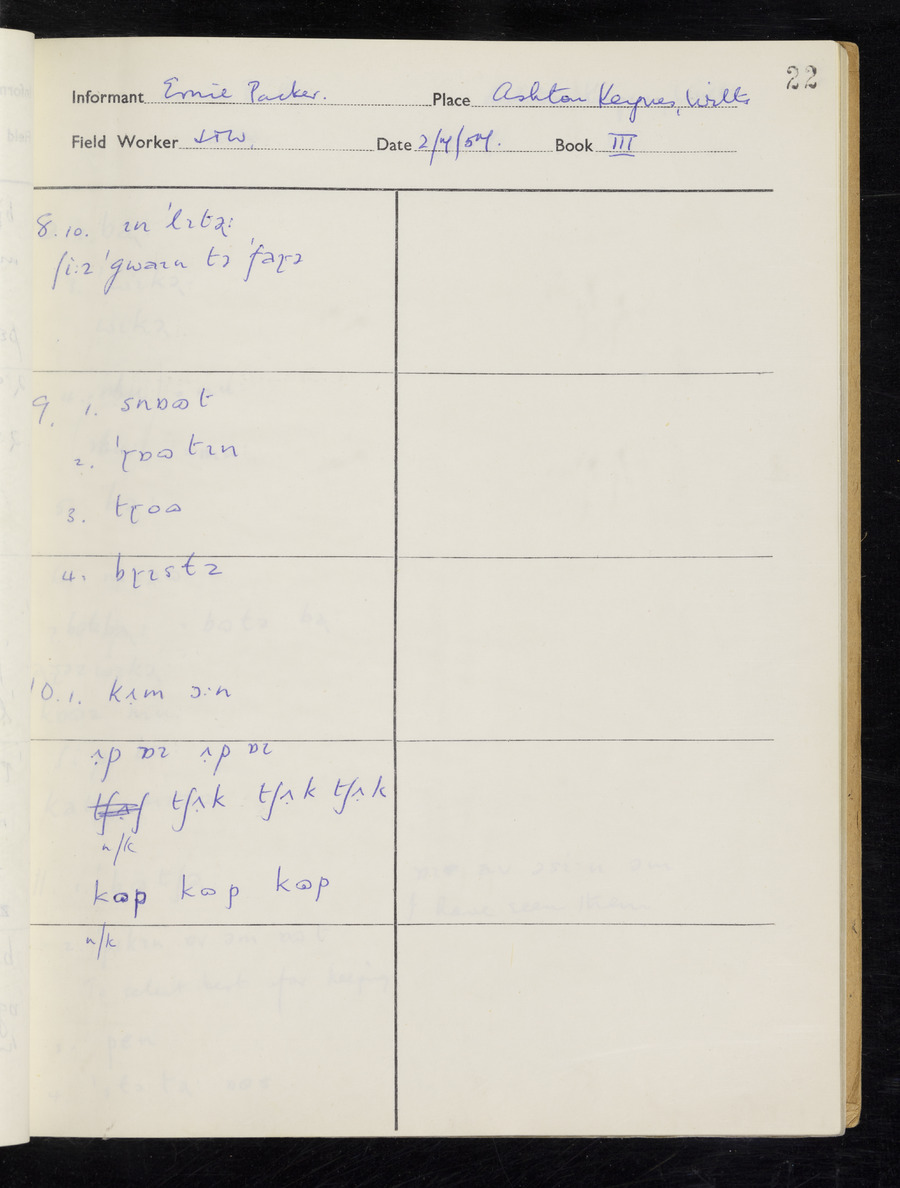 22
Informant Ernie Packer. Place Ashton Keynes, Wilts
Field Worker Date 2/4/54. Book III
8.10. ɪn ˈlɪtɚː
ʃiːz ˈgwaɪn tə ˈfaɽə
9. 1. snɒʊt
2. ˈɽɒʊtɪn
3. tɽoʊ
4. bɽɪstz
10.1. kʌ̣m ɔːn
ʌ̣p ɒɪ ʌ̣p ɒɪ
tʃʌ̣k tʃʌ̣k tʃʌ̣k
n/k
kʊp kʊp kʊp
n/k